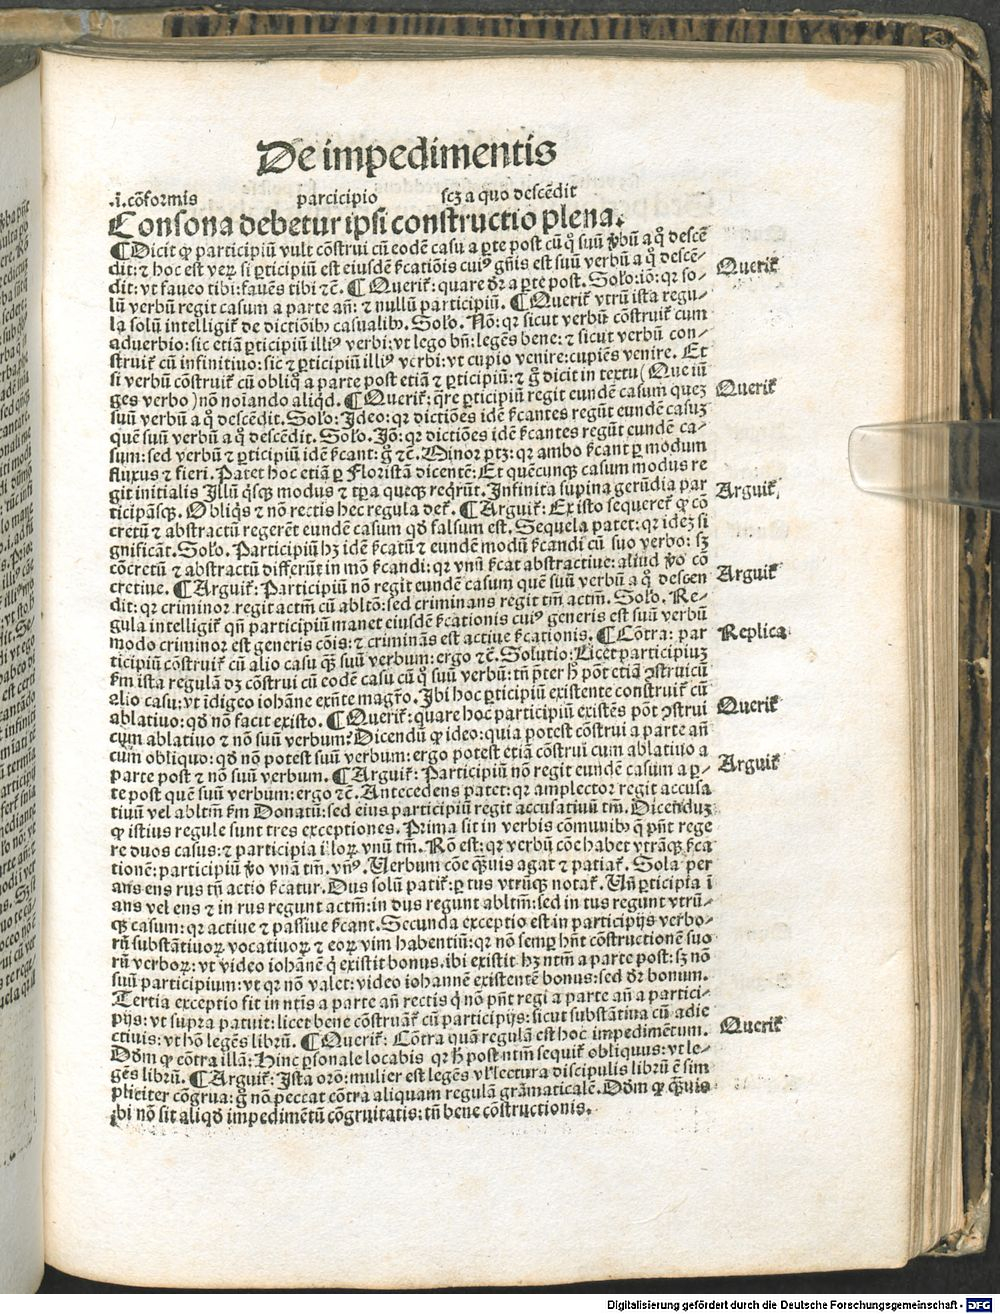 De impedimentis
.i. cōformis parcicipio scꝫ a quo descēdit
Consona debetur ipsi constructio plena.
¶ Dicit ꝙ participiū vult cōstrui cū eodē casu a ꝑte post cū q̊ suū v̓bū a q̊ descē
dit: ⁊ hoc est veꝝ si ꝑticipiū est eiusdē ſ̓catiōis cuiꝰ gn̄is est suū verbū a q̊ descē-
dit: vt faueo tibi: fauēs tibi ⁊c̄. ¶ Querit᷑: quare dr̄ a ꝑte post. Solo: iō: qꝛ so-
lū verbū regit casum a parte an̄: ⁊ nullū participiū. ¶ Querit᷑ vtrū ista regu-
la solū intelligit᷑ de dictiōibꝰ casualibꝰ. Solo. Nō: qꝛ sicut verbū cōstruit᷑ cum
aduerbio: sic etiā ꝑticipiū illiꝰ verbi: vt lego bn̄: legēs bene: ⁊ sicut verbū con-
struit᷑ cū infinitiuo: sic ⁊ ꝑticipiū illiꝰ verbi: vt cupio venire: cupiēs venire. Et
si verbū cōstruit᷑ cū obliq̊ a parte post etiā ⁊ ꝑticipiū: ⁊ g̊ dicit in textu (Que iū
ges verbo) nō noīando aliqd̓. ¶ Querit᷑: q̄re ꝑticipiū regit eundē casum quez
suū verbū a q̊ descēdit. Solo: Ideo: qꝛ dictiōes idē ſ̓cantes regūt eundē casuꝫ
quē suū verbū a q̊ descēdit. Solo. Iō: qꝛ dictiōes idē ſ̓cantes regūt eundē ca-
sum: sed verbū ⁊ ꝑticipiū idē ſ̓cant: g̊ ⁊c̄. Minor ptꝫ: qꝛ ambo ſ̓cant ꝑ modum
fluxus ⁊ fieri. Patet hoc etiā ꝑ Floristā dicentē: Et quēcunqꝫ casum modus re
git initialis Illū q̄sqꝫ modus ⁊ tp̄a queqꝫ reqrūt. Infinita supina gerūdia par
ticipāsqꝫ. Obliqs ⁊ nō rectis hec regula det᷑. ¶ Arguit᷑: Ex isto sequeret᷑ ꝙ cō
cretū ⁊ abstractū regerēt eundē casum qd̓ falsum est. Sequela patet: qꝛ ideꝫ si
gnificāt. Solo. Participiū hꝫ idē ſ̓catū ⁊ eundē modū ſ̓candi cū suo verbo: sꝫ
cōcretū ⁊ abstractū differūt in mō ſ̓candi: qꝛ vnū ſ̓cat abstractiue: aliud v̓o cō
cretiue. ¶ Arguit᷑: Participiū nō regit eundē casum quē suū verbū a q̊ descen
dit: qꝛ criminor regit actm̄ cū abltō: sed criminans regit tm̄ actm̄. Solo. Re-
gula intelligit᷑ qn̄ participiū manet eiusdē ſ̓cationis cuiꝰ generis est suū verbū
modo criminor est generis cōis: ⁊ crimināns est actiue ſ̓cationis. ¶ Cōtra: par
ticipiū cōstruit᷑ cū alio casu qꝫ suū verbum: ergo ⁊c̄. Solutio: Licet participiuꝫ
ſm ista regulā dꝫ cōstrui cū eodē casu cū q̊ suū verbū: tn̄ p̄ter h̓ pōt etiā ꝯstrui cū
alio casu: vt īdigeo iohāne exn̄te magr̄o. Ibi hoc ꝑticipiū existente construit᷑ cū
ablatiuo: qd̓ nō facit existo. ¶ Querit᷑: quare hoc participiū existēs pōt ꝯstrui
cum ablatiuo ⁊ nō suū verbum? Dicendū ꝙ ideo: quia potest cōstrui a parte an̄
cum obliquo: qd̓ nō potest suū verbum: ergo potest etiā cōstrui cum ablatiuo a
parte post ⁊ nō suū verbum. ¶ Arguit᷑: Participiū nō regit eundē casum a ꝑ-
te post quē suū verbum: ergo ⁊c̄. Antecedens patet: qꝛ amplector regit accusa
tiuū vel abltm̄ ſm Donatū: sed eius participiū regit accusatiuū tm̄. Dicenduꝫ
ꝙ istius regule sunt tres exceptiones. Prima sit in verbis cōmunibꝰ q̄ pn̄t rege
re duos casus: ⁊ participia illoꝝ vnū tm̄. Rō est: qꝛ verbū cōe habet vtrāqꝫ ſ̓ca
tionē: participiū v̓o vnā tm̄. vn̄ꝰ. Uerbum cōe q̄uis agat ⁊ patiat᷑. Sola per
ans ens rus tn̄ actio ſ̓catur. Dus solū patit᷑: ꝑ tus vtrūqꝫ notat᷑. Un̄ ꝑticipia ī
ans vel ens ⁊ in rus regunt actm̄: in dus regunt abltm̄: sed in tus regunt vtrū-
qꝫ casum: qꝛ actiue ⁊ passiue ſ̓cant. Secunda exceptio est in participijs verbo-
rū substātiuoꝝ vocatiuoꝝ ⁊ eoꝝ vim habentiū: qꝛ nō semꝑ hn̄t cōstructionē suo
rū verboꝝ: vt video iohānē q̇ existit bonus. ibi existit hꝫ ntm̄ a parte post: sꝫ nō
suū participium: vt qꝛ nō valet: video iohannē existentē bonus: sed dr̄ bonum.
Tertia exceptio fit in ntīs a parte an̄ rectis q̇ nō pn̄t regi a parte an̄ a partici-
pijs: vt supra patuit: licet bene cōstruāt᷑ cū participijs: sicut substātiua cū adie
ctiuis: vt hō legēs librū. ¶ Querit᷑: Cōtra quā regulā est hoc impedimētum.
Dd̓m ꝙ cōtra illā: Hinc ꝑsonale locabis qꝛ h̓ post ntm̄ sequit᷑ obliquus: vt le-
gēs librū. ¶ Arguit᷑: Ista orō: mulier est legēs vl̓ lectura discipulis librū ē sim
pliciter cōgrua: g̊ nō peccat cōtra aliquam regulā grāmaticalē. Dd̓m ꝙ q̄uis
ibi nō sit aliqd̓ impedimētū cōgruitatis: tn̄ bene cōstructionis.
Querit᷑
Querit᷑
Arguit᷑
Arguit᷑
Replica
Querit᷑
Arguit᷑
Querit᷑
Digitalisierung gefördert durch die Deutsche Forschungsgemeinschaft - DFG